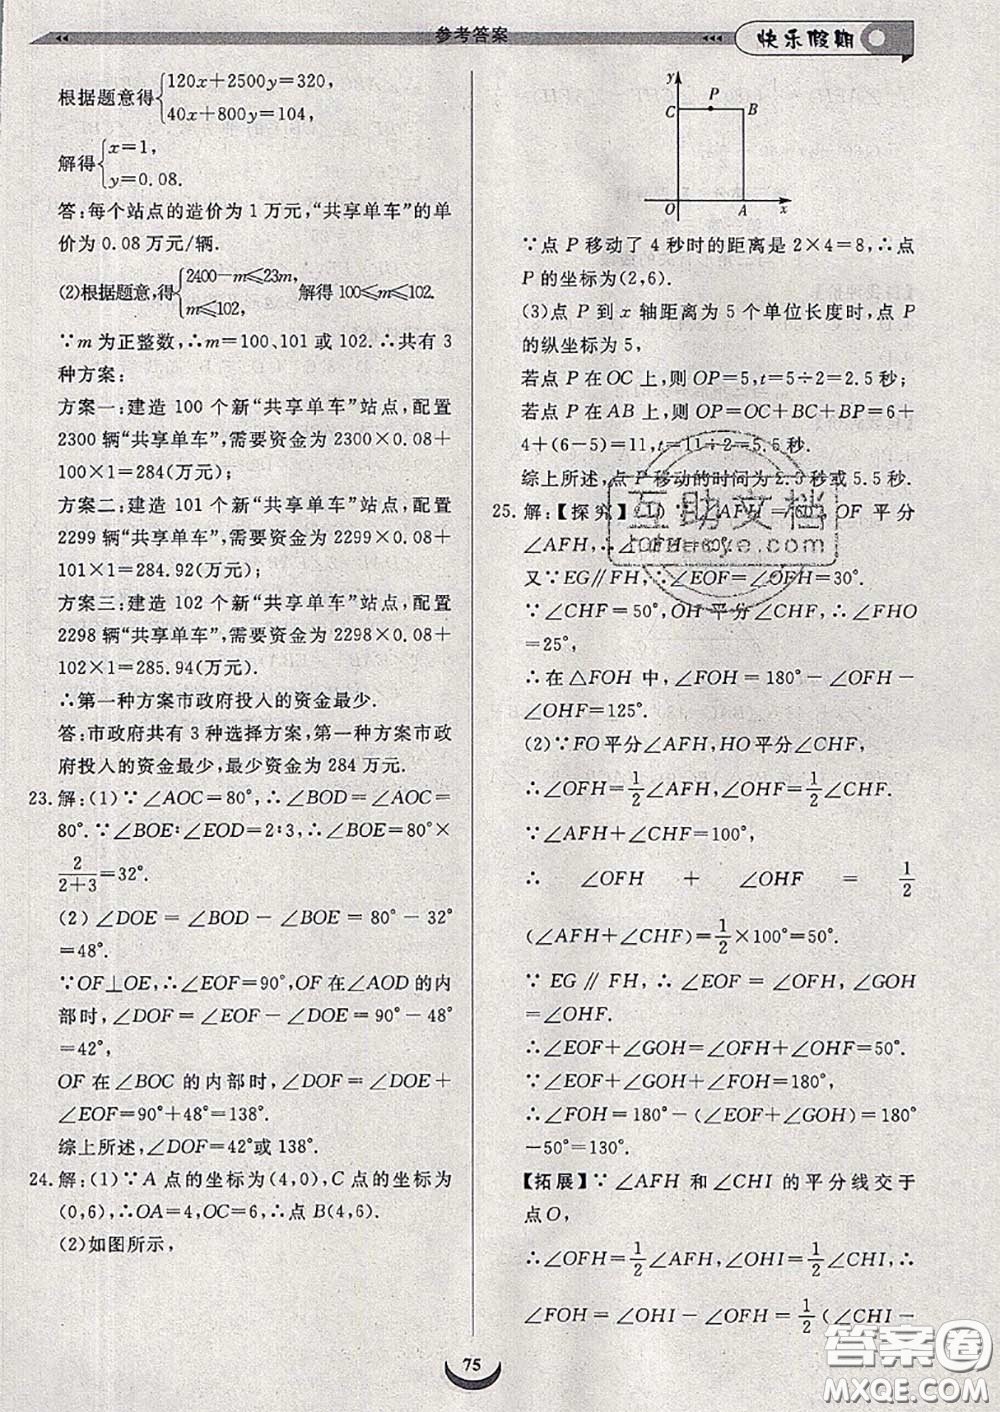 参考答案
快乐假期
根据题意得{120x+2500y=320,
40x+800y=104,
解得{x=1,
y=0.08.
答:每个站点的造价为 1 万元,“共享单车”的单
价为 0.08 万元/辆.
(2)根据题意,得{2400-m≤23m,
m≤102, 解得 100≤m≤102.
∵m 为正整数,∴m=100、101 或 102.∴共有 3
种方案:
方案一:建造 100 个新“共享单车”站点,配置
2300 辆“共享单车”,需要资金为 2300×0.08+
100×1=284(万元);
方案二:建造 101 个新“共享单车”站点,配置
2299 辆“共享单车”,需要资金为 2299×0.08+
101×1=284.92(万元);
方案三:建造 102 个新“共享单车”站点,配置
2298 辆“共享单车”,需要资金为 2298×0.08+
102×1=285.94(万元).
∴第一种方案市政府投入的资金最少.
答:市政府共有 3 种选择方案,第一种方案市政
府投入的资金最少,最少资金为 284 万元.
23.解:(1)∵∠AOC=80°,∴∠BOD=∠AOC=
80°.∵∠BOE∶∠EOD=2∶3,∴∠BOE=80°×
2/(2+3)=32°.
(2)∠DOE=∠BOD-∠BOE=80°-32°
=48°.
∵OF⊥OE,∴∠EOF=90°,OF 在∠AOD 的内
部时,∠DOF=∠EOF-∠DOE=90°-48°
=42°,
OF 在∠BOC 的内部时,∠DOF=∠DOE+
∠EOF=90°+48°=138°.
综上所述,∠DOF=42°或 138°.
24.解:(1)∵A 点的坐标为(4,0),C 点的坐标为
(0,6),∴OA=4,OC=6,∴点 B(4,6).
(2)如图所示,
y
P
C
B
O
A
x
∵点 P 移动了 4 秒时的距离是 2×4=8,∴点
P 的坐标为(2,6).
(3)点 P 到 x 轴距离为 5 个单位长度时,点 P
的纵坐标为 5,
若点 P 在 OC 上,则 OP=5,t=5÷2=2.5 秒;
若点 P 在 AB 上,则 OP=OC+BC+BP=6+
4+(6-5)=11,t=11÷2=5.5 秒.
综上所述,点 P 移动的时间为 2.5 秒或 5.5 秒.
25.解:【探究】(1)∵∠AFH=60°,OF 平分
∠AFH,∴∠OFH=30°.
又∵EG∥FH,∴∠EOF=∠OFH=30°.
∵∠CHF=50°,OH 平分∠CHF,∴∠FHO
=25°,
∴在△FOH 中,∠FOH=180°-∠OFH-
∠OHF=125°.
(2)∵FO平分∠AFH,HO平分∠CHF,
∴∠OFH=1/2∠AFH,∠OHF=1/2∠CHF.
∵∠AFH+∠CHF=100°,
∴ ∠OFH + ∠OHF = 1/2
(∠AFH+∠CHF)=1/2×100°=50°.
∵ EG ∥ FH,∴ ∠EOF = ∠OFH,∠GOH
=∠OHF.
∴∠EOF+∠GOH=∠OFH+∠OHF=50°.
∵∠EOF+∠GOH+∠FOH=180°,
∴∠FOH=180°-(∠EOF+∠GOH)=180°
-50°=130°.
【拓展】∵∠AFH 和∠CHI 的平分线交于
点O,
∴∠OFH=1/2∠AFH,∠OHI=1/2∠CHI,∴
∠FOH=∠OHI-∠OFH=1/2(∠CHI-
75
互助文档
答案圈
MXQE.COM